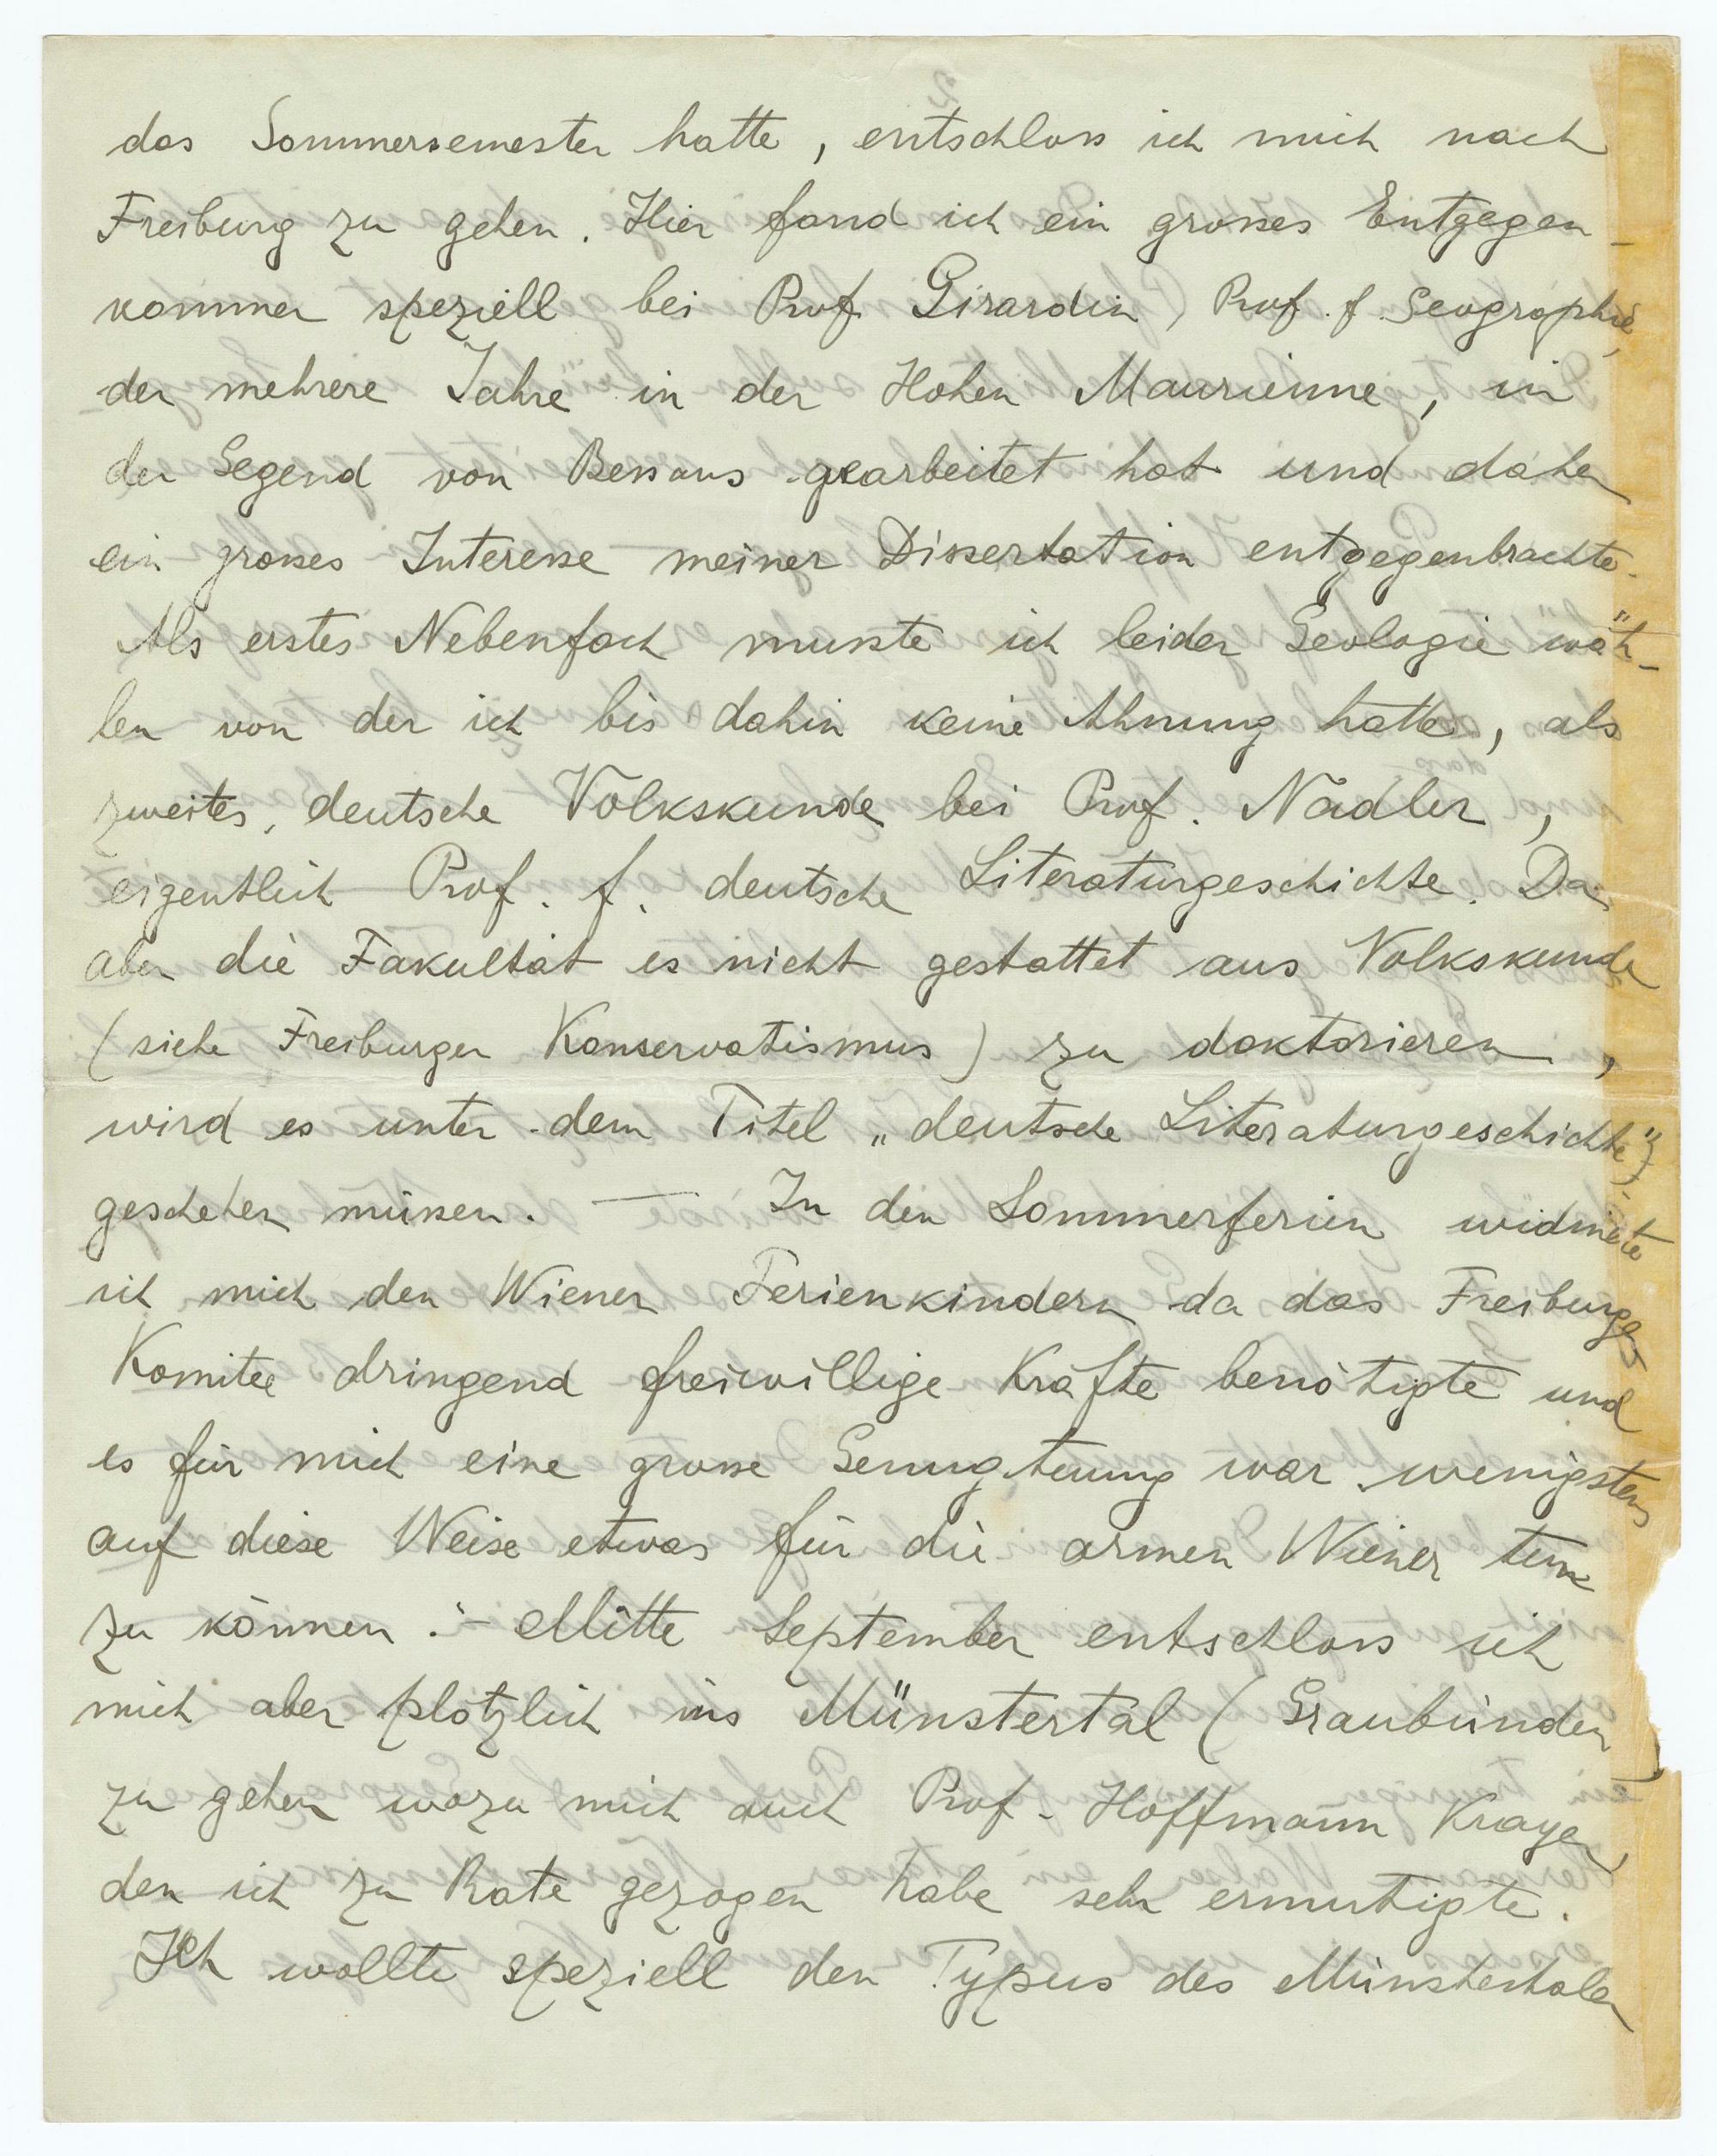 das Sommersemester hatte, entschloss ich mich nach
Freiburg zu gehen. Hier fand ich ein grosses Entgegen-
kommen speziell bei Prof. Girardin, Prof. f. Geographie,
der mehrere Jahre in der Hohen Maurienne, in
der Gegend von Bessans gearbeitet hat und daher
ein grosses Interesse meiner Dissertation entgegenbrachte.
Als erstes Nebenfach musste ich leider Geologie wäh-
len von der ich bis dahin keine Ahnung hatte, als
zweites, deutsche Volkskunde bei Prof. Nadler,
eigentlich Prof. f. deutsche Literaturgeschichte. Da
aber die Fakultät es nicht gestattet aus Volkskunde
(siehe Freiburger Konservatismus) zu doktorieren,
wird es unter dem Titel „deutsche Literaturgeschichte"
geschehen müssen. — In den Sommerferien widmete
ich mich den Wiener Ferienkindern da das Freiburger
Komitee dringend freiwillige Kräfte benötigte und
es für mich eine grosse Genugtuung war wenigstens
auf diese Weise etwas für die armen Wiener tun
zu können. - Mitte September entschloss ich
mich aber plötzlich ins Münstertal (Graubünden)
zu gehen wozu mich auch Prof. Hoffmann Krayer,
den ich zu Rate gezogen habe sehr ermutigte.
Ich wollte speziell den Typus des Münstertaler